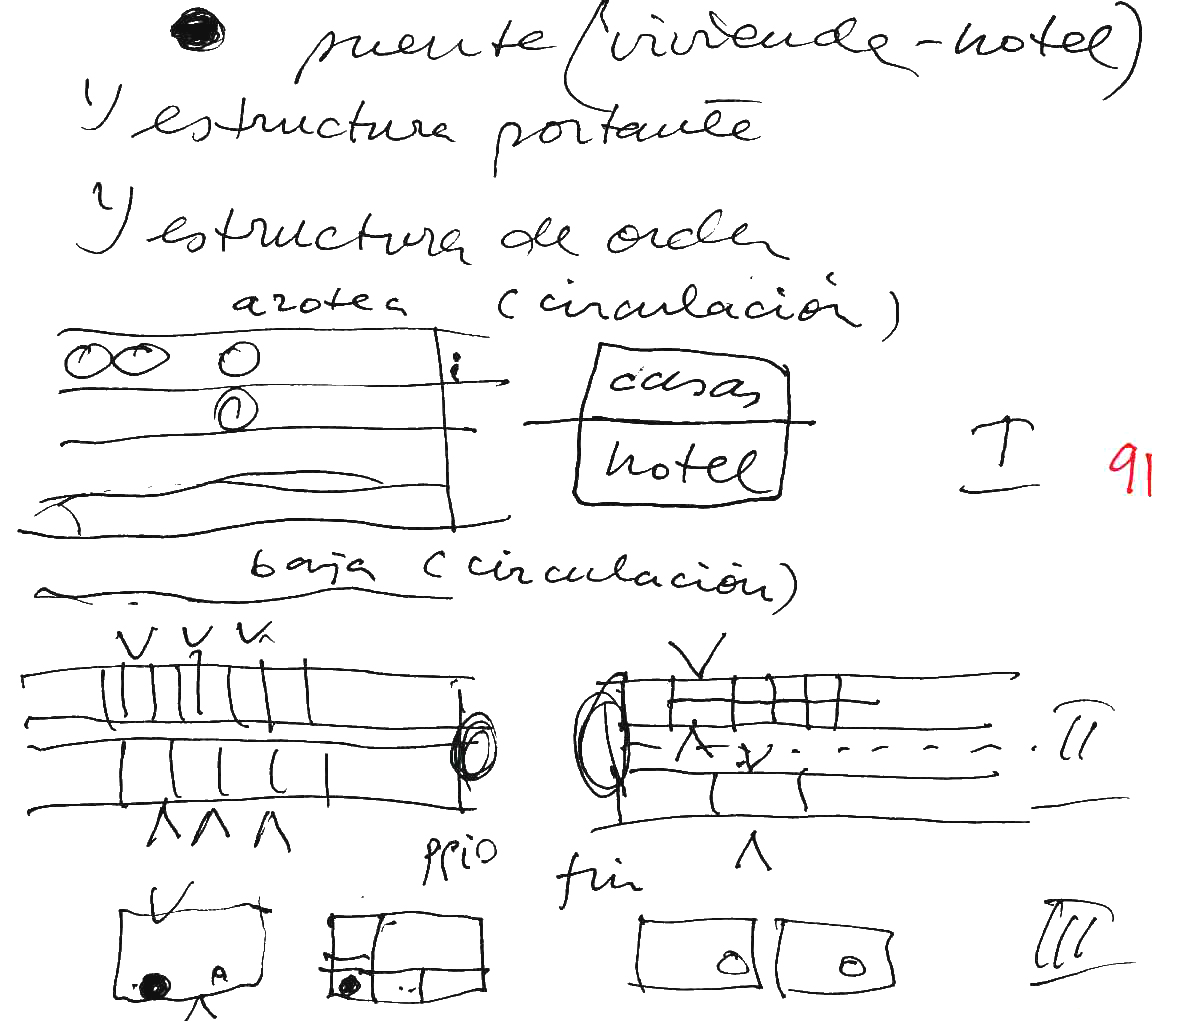 puente (vivienda-hotel)
Y estructura portante
Y estructura de orden
azotea (circulación)
casas
hotel
I
91
baja (circulación)
II
ppio
fin
A
III